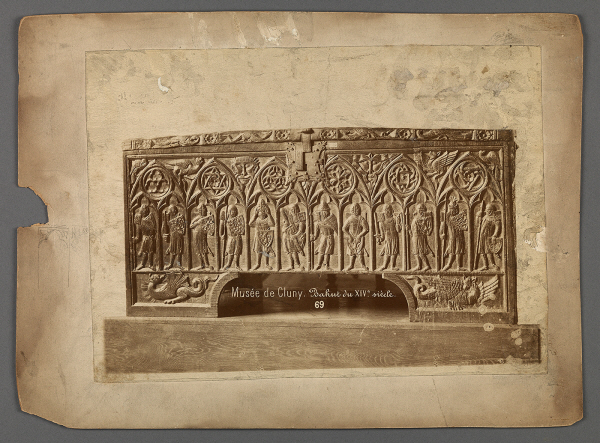 Musée de Cluny. Bahut du XIVe siècle.
69